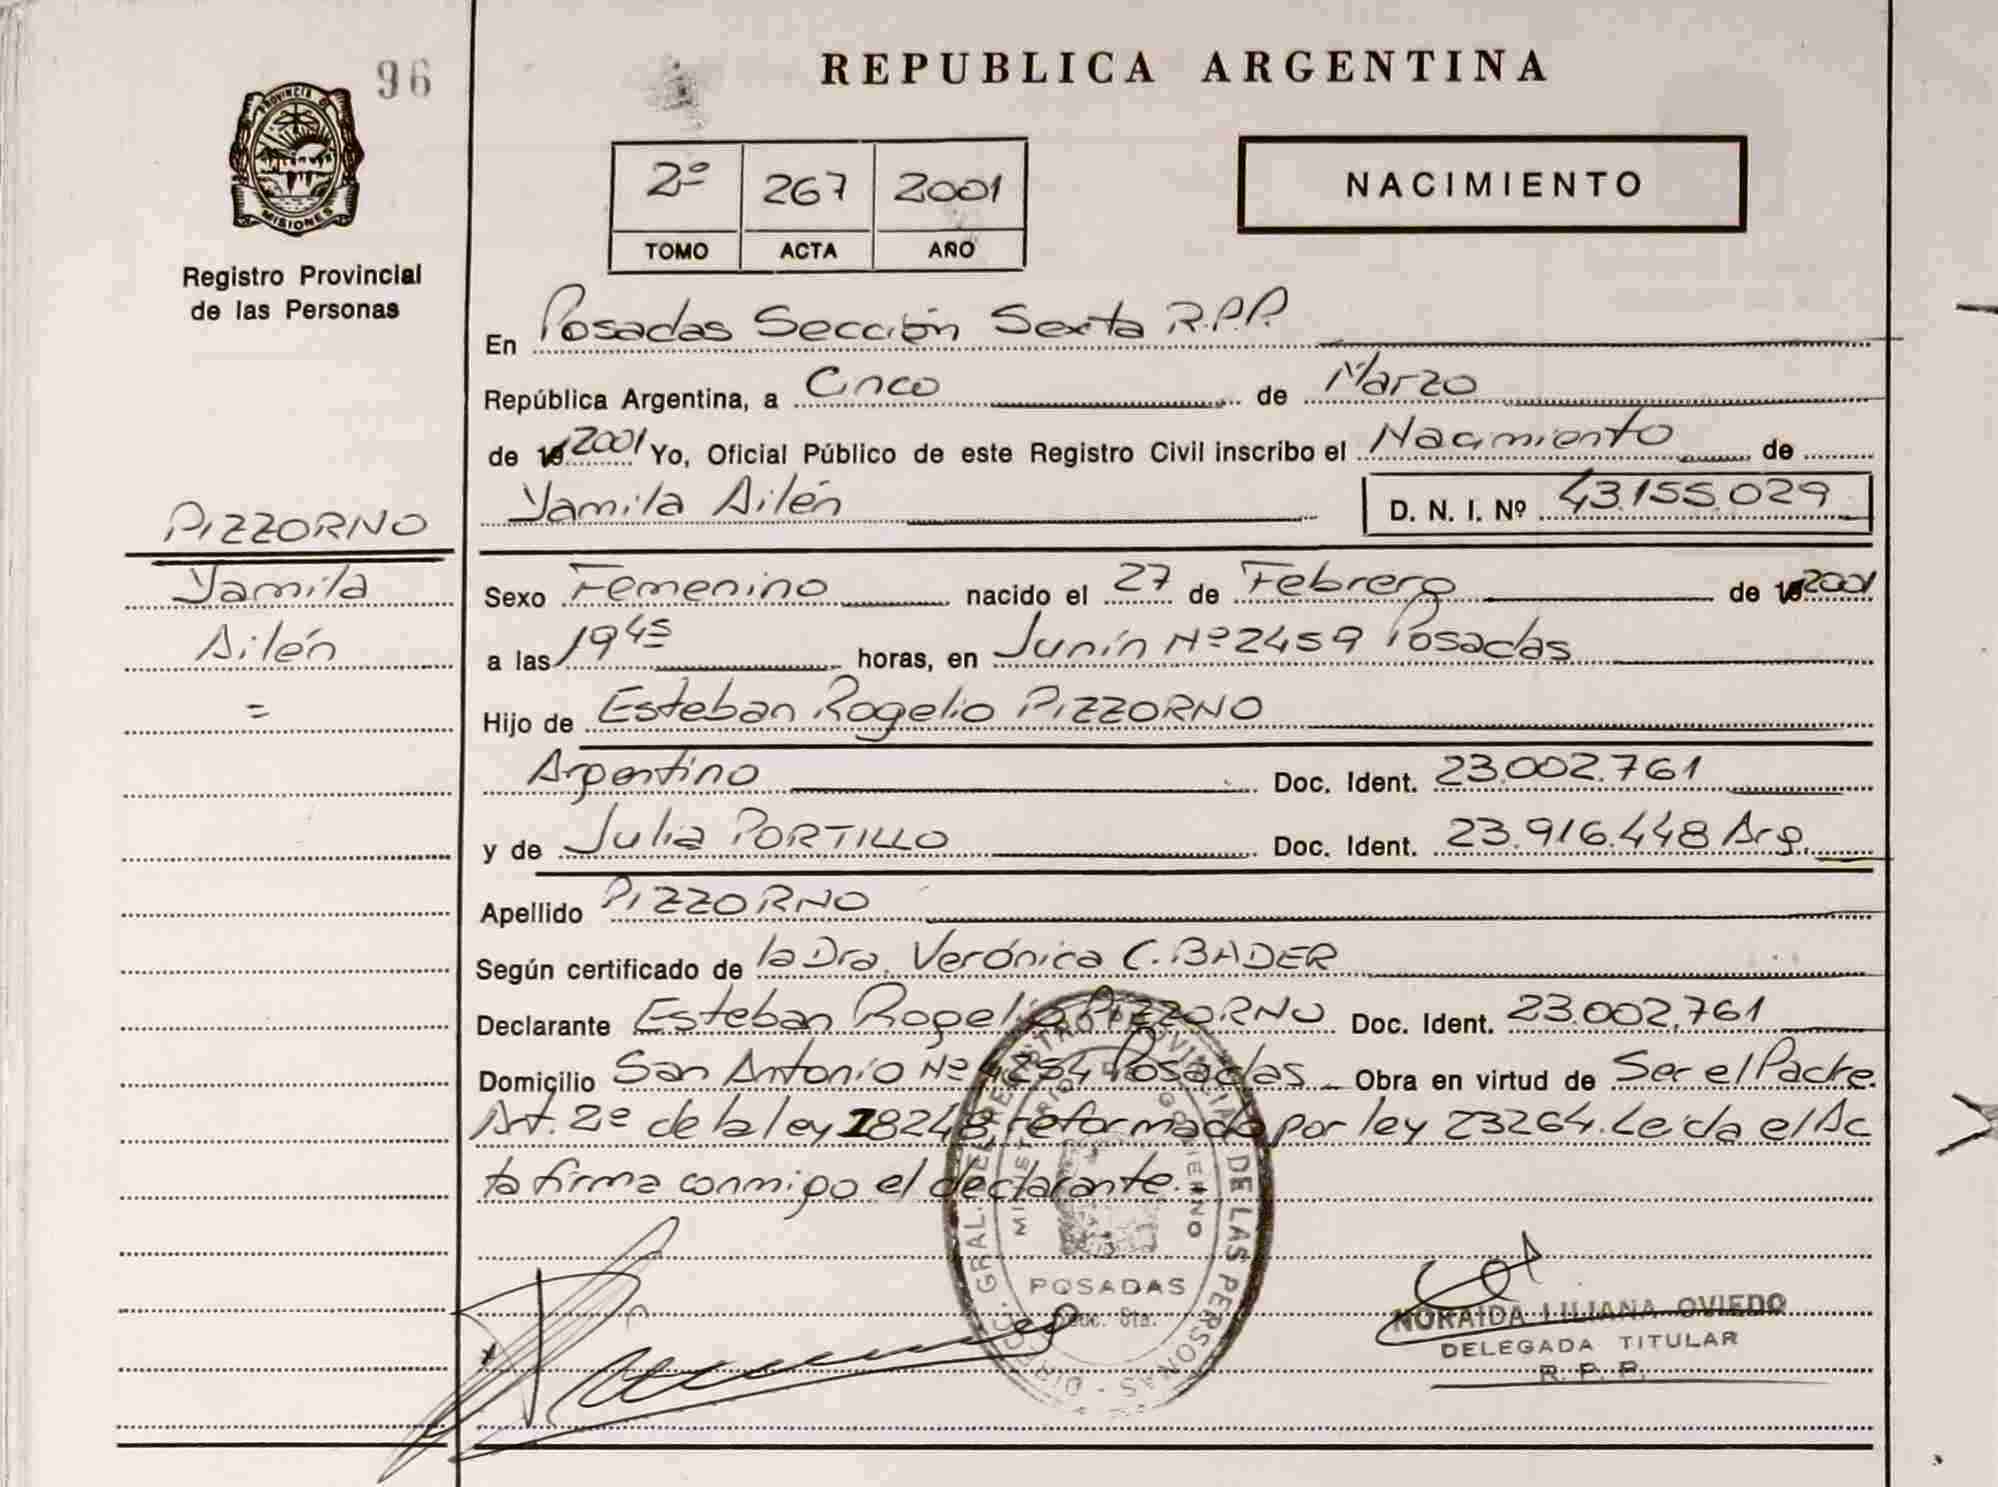 96
REPUBLICA ARGENTINA
PROVINCIA DE
MISIONES
Registro Provincial
de las Personas
2º 267 2001
TOMO ACTA AÑO
NACIMIENTO
En Posadas Sección Sexta R.P.P.
República Argentina, a Cinco de Marzo
de 2001 Yo, Oficial Público de este Registro Civil inscribo el Nacimiento de
Yamila Ailén D. N. I. Nº 43.155.029
PIZZORNO
Yamila
Ailén
=
Sexo Femenino nacido el 27 de Febrero de 2001
a las 19 45 horas, en Junín Nº 2459 Posadas
Hijo de Esteban Rogelio PIZZORNO
Argentino Doc. Ident. 23.002.761
y de Julia PORTILLO Doc. Ident. 23.916.448 Arg.
Apellido PIZZORNO
Según certificado de la Dra. Verónica C. BADER
Declarante Esteban Rogelio PIZZORNO Doc. Ident. 23.002.761
Domicilio San Antonio Nº 4254 Posadas Obra en virtud de Ser el Padre.
Art. 2º de la ley 18248 reformado por ley 23264. Leida el Ac
ta firma conmigo el declarante.
DIRECC. GRAL. DEL REGISTRO PROVINCIAL DE LAS PERSONAS
MINISTERIO DE GOBIERNO
POSADAS
6ta.
NORAIDA LILIANA OVIEDO
DELEGADA TITULAR
R. P. P.